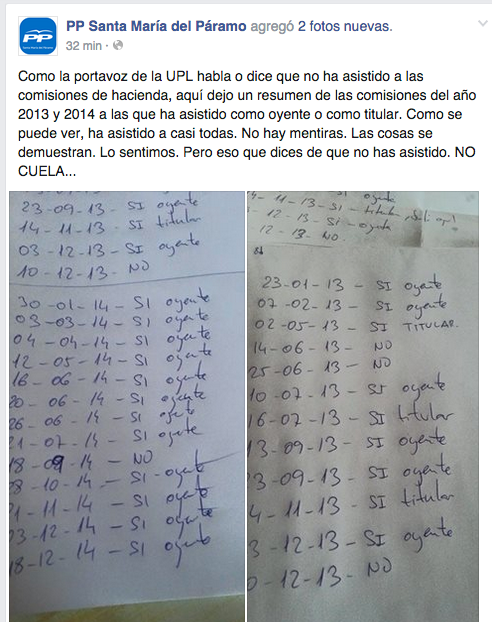 PP
Santa María del Páramo
PP Santa María del Páramo agregó 2 fotos nuevas.
32 min ·
Como la portavoz de la UPL habla o dice que no ha asistido a las
comisiones de hacienda, aquí dejo un resumen de las comisiones del año
2013 y 2014 a las que ha asistido como oyente o como titular. Como se
puede ver, ha asistido a casi todas. No hay mentiras. Las cosas se
demuestran. Lo sentimos. Pero eso que dices de que no has asistido. NO
CUELA...
23-09-13- SI oyente
14-11-13- SI titular
03-12-13- SI oyente
10-12-13- NO
30-01-14- SI oyente
03-03-14- SI oyente
04-04-14- SI oyente
12-05-14- SI oyente
16-06-14- SI oyente
20-06-14- SI oyente
26-06-14- SI oyente
21-07-14- SI oyente
18-09-14- NO
08-10-14- SI oyente
1-11-14- SI oyente
03-12-14- SI oyente
18-12-14- SI oyente
4-11-13- SI- titular
12-13- SI- oyente
12-13- NO
23-01-13- SI oyente
07-02-13- SI oyente
02-05-13- SI TITULAR.
14-06-13- NO
25-06-13- NO
10-07-13- SI oyente
16-07-13- SI titular
13-09-13- SI oyente
3-09-13- SI oyente
4-11-13- SI titular
3-12-13- SI oyente
0-12-13- NO